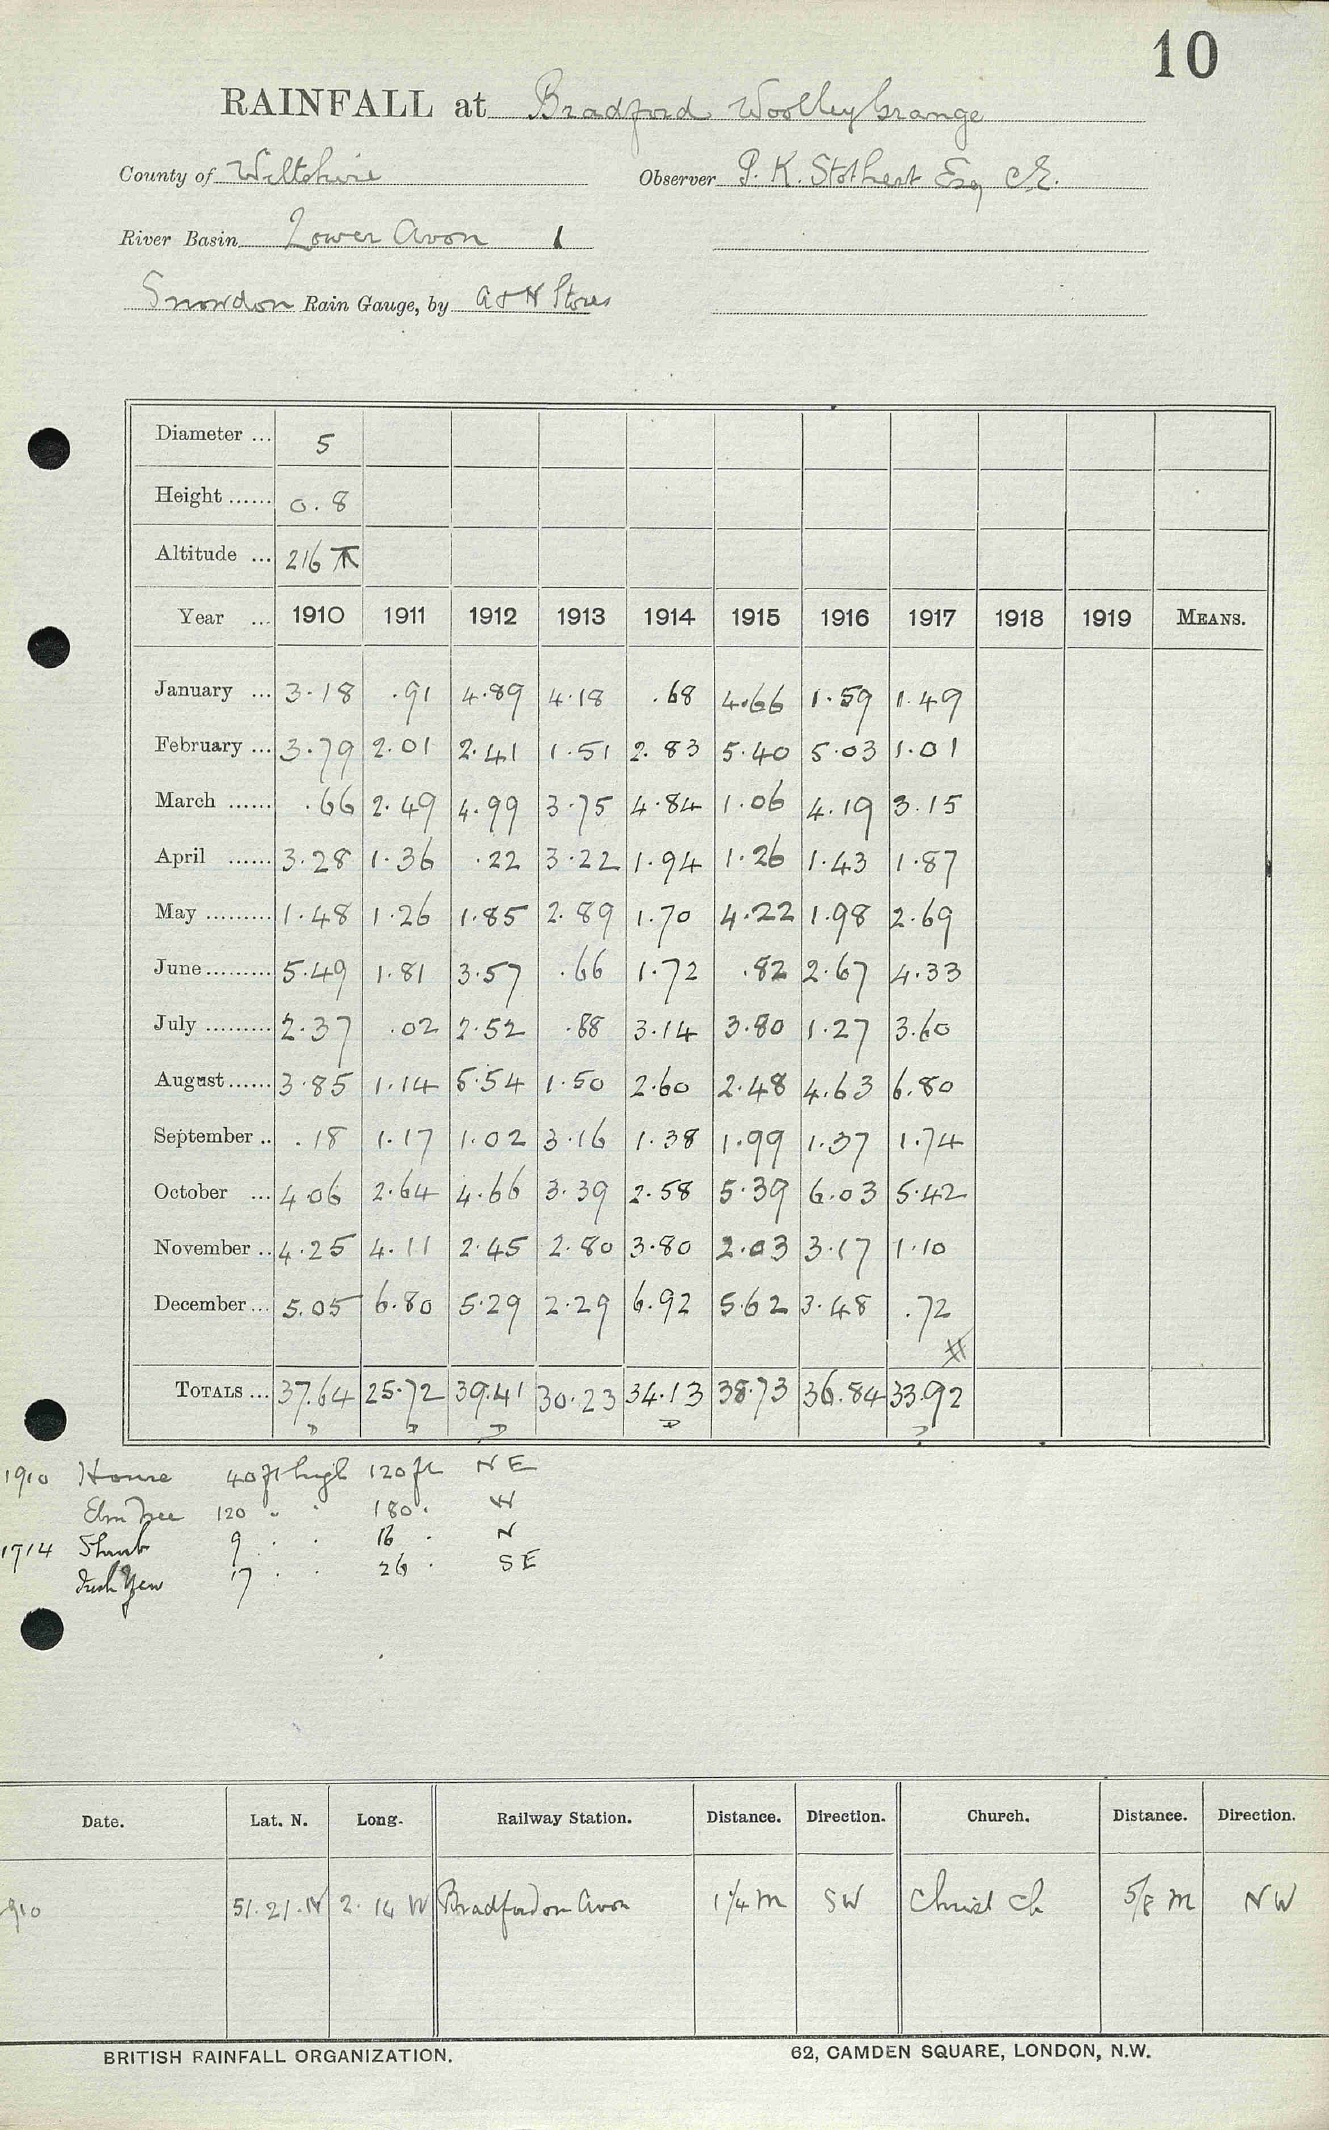 10
RAINFALL at Bradford Woolley Grange
County of Wiltshire Observer P. K. Stothert Esq C.E.
River Basin Lower Avon 1
Snowdon Rain Gauge, by A & N Stores
Diameter ... 5
Height ...... 0.8
Altitude ... 216
Year ... 1910 1911 1912 1913 1914 1915 1916 1917 1918 1919 MEANS.
January ... 3.18 .91 4.89 4.18 .68 4.66 1.59 1.49
February ... 3.79 2.01 2.41 1.51 2.83 5.40 5.03 1.01
March ...... .66 2.49 4.99 3.75 4.84 1.06 4.19 3.15
April ...... 3.28 1.36 .22 3.22 1.94 1.26 1.43 1.87
May ......... 1.48 1.26 1.85 2.89 1.70 4.22 1.98 2.69
June ......... 5.49 1.81 3.57 .66 1.72 .82 2.67 4.33
July ......... 2.37 .02 2.52 .88 3.14 3.80 1.27 3.60
August ...... 3.85 1.14 5.54 1.50 2.60 2.48 4.63 6.80
September .. .18 1.17 1.02 3.16 1.38 1.99 1.37 1.74
October ... 4.06 2.64 4.66 3.39 2.58 5.39 6.03 5.42
November .. 4.25 4.11 2.45 2.80 3.80 2.03 3.17 1.10
December ... 5.05 6.80 5.29 2.29 6.92 5.62 3.48 .72
TOTALS ... 37.64 25.72 39.41 30.23 34.13 38.73 36.84 33.92
1910 House 40 ft high 120 ft NE
Elm Tree 120 " " 180 " W
1914 Shrub 9 " " 16 " N
Irish Yew 17 " " 26 " SE
Date. Lat. N. Long. Railway Station. Distance. Direction. Church. Distance. Direction.
1910 51.21.N 2.14 W Bradford on Avon 1 1/4 m SW Christ Ch 5/8 m NW
BRITISH RAINFALL ORGANIZATION. 62, CAMDEN SQUARE, LONDON, N.W.